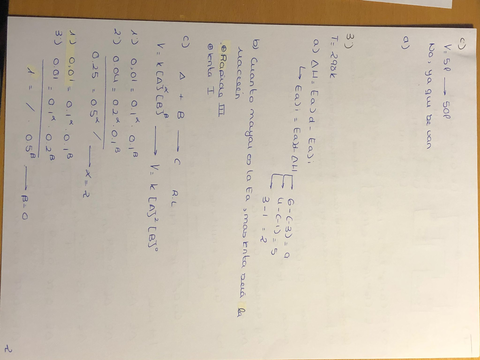 c)
V: SP → SOP
No, ya que se van
a)
3)
T = 298K
a) ΔH = Ead - Eai
↳ Eai = Ead - ΔH
6 - (-3) = 9
4 - (-1) = 5
3 - 1 = 2
b) Cuanto mayor es la Ea, mas lenta será la
reacción
Rapida: III
lenta: I
c) A + B → C
V = k [A]^α [B]^β → V = k [A]^2 [B]^0
1) 0.01 = 0.1^α 0.1^β
2) 0.04 = 0.2^α 0.1^β
0.25 = 0.5^α / → α = 2
1) 0.01 = 0.1^α 0.1^β
3) 0.01 = 0.1^α 0.2^β
1 = / 0.5^β → β = 0
2